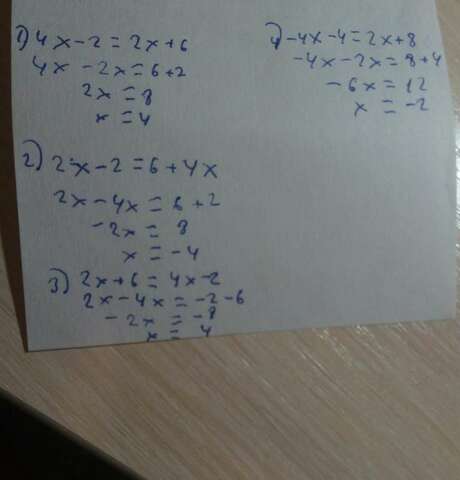 1) 4x-2=2x+6
4x-2x=6+2
2x=8
x=4
2) 2x-2=6+4x
2x-4x=6+2
-2x=8
x=-4
3) 2x+6=4x-2
2x-4x=-2-6
-2x=-8
x=4
4) -4x-4=2x+8
-4x-2x=8+4
-6x=12
x=-2